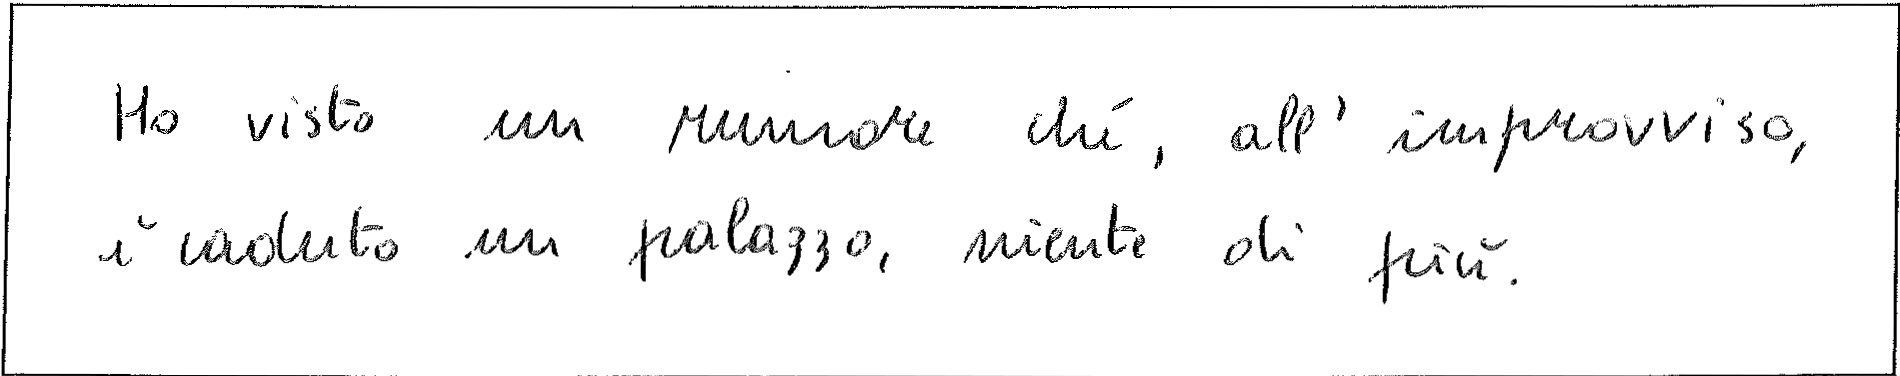 Ho visto un rumore ché, all'improvviso,
è caduto un palazzo, niente di più.